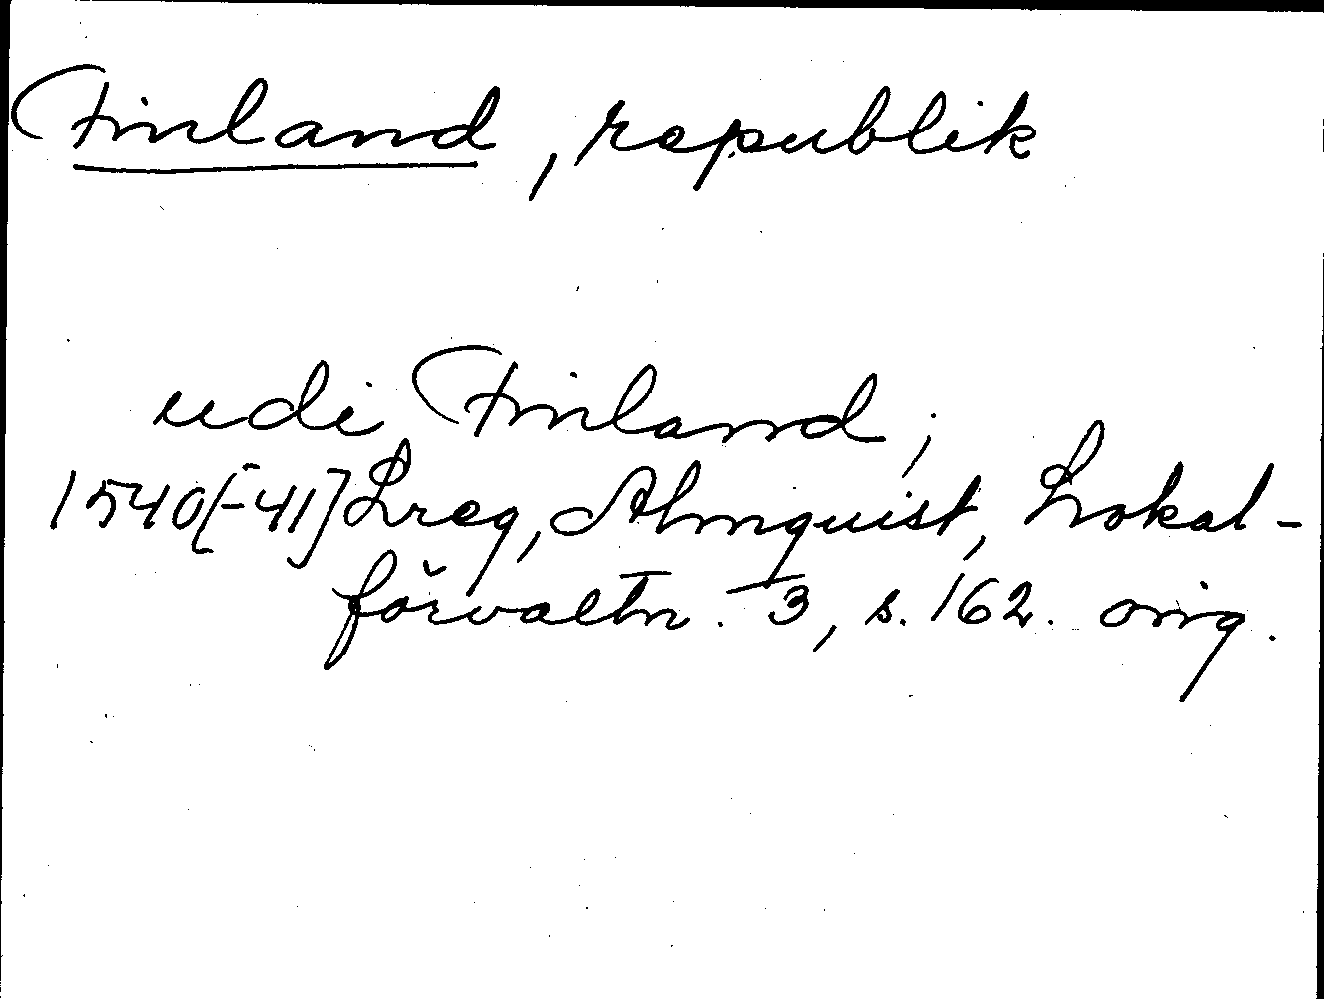 Finland, republik
udi Finland;
1540[-41] Lreg, Almquist, Lokal-
förvaltn. 3, s. 162. orig.